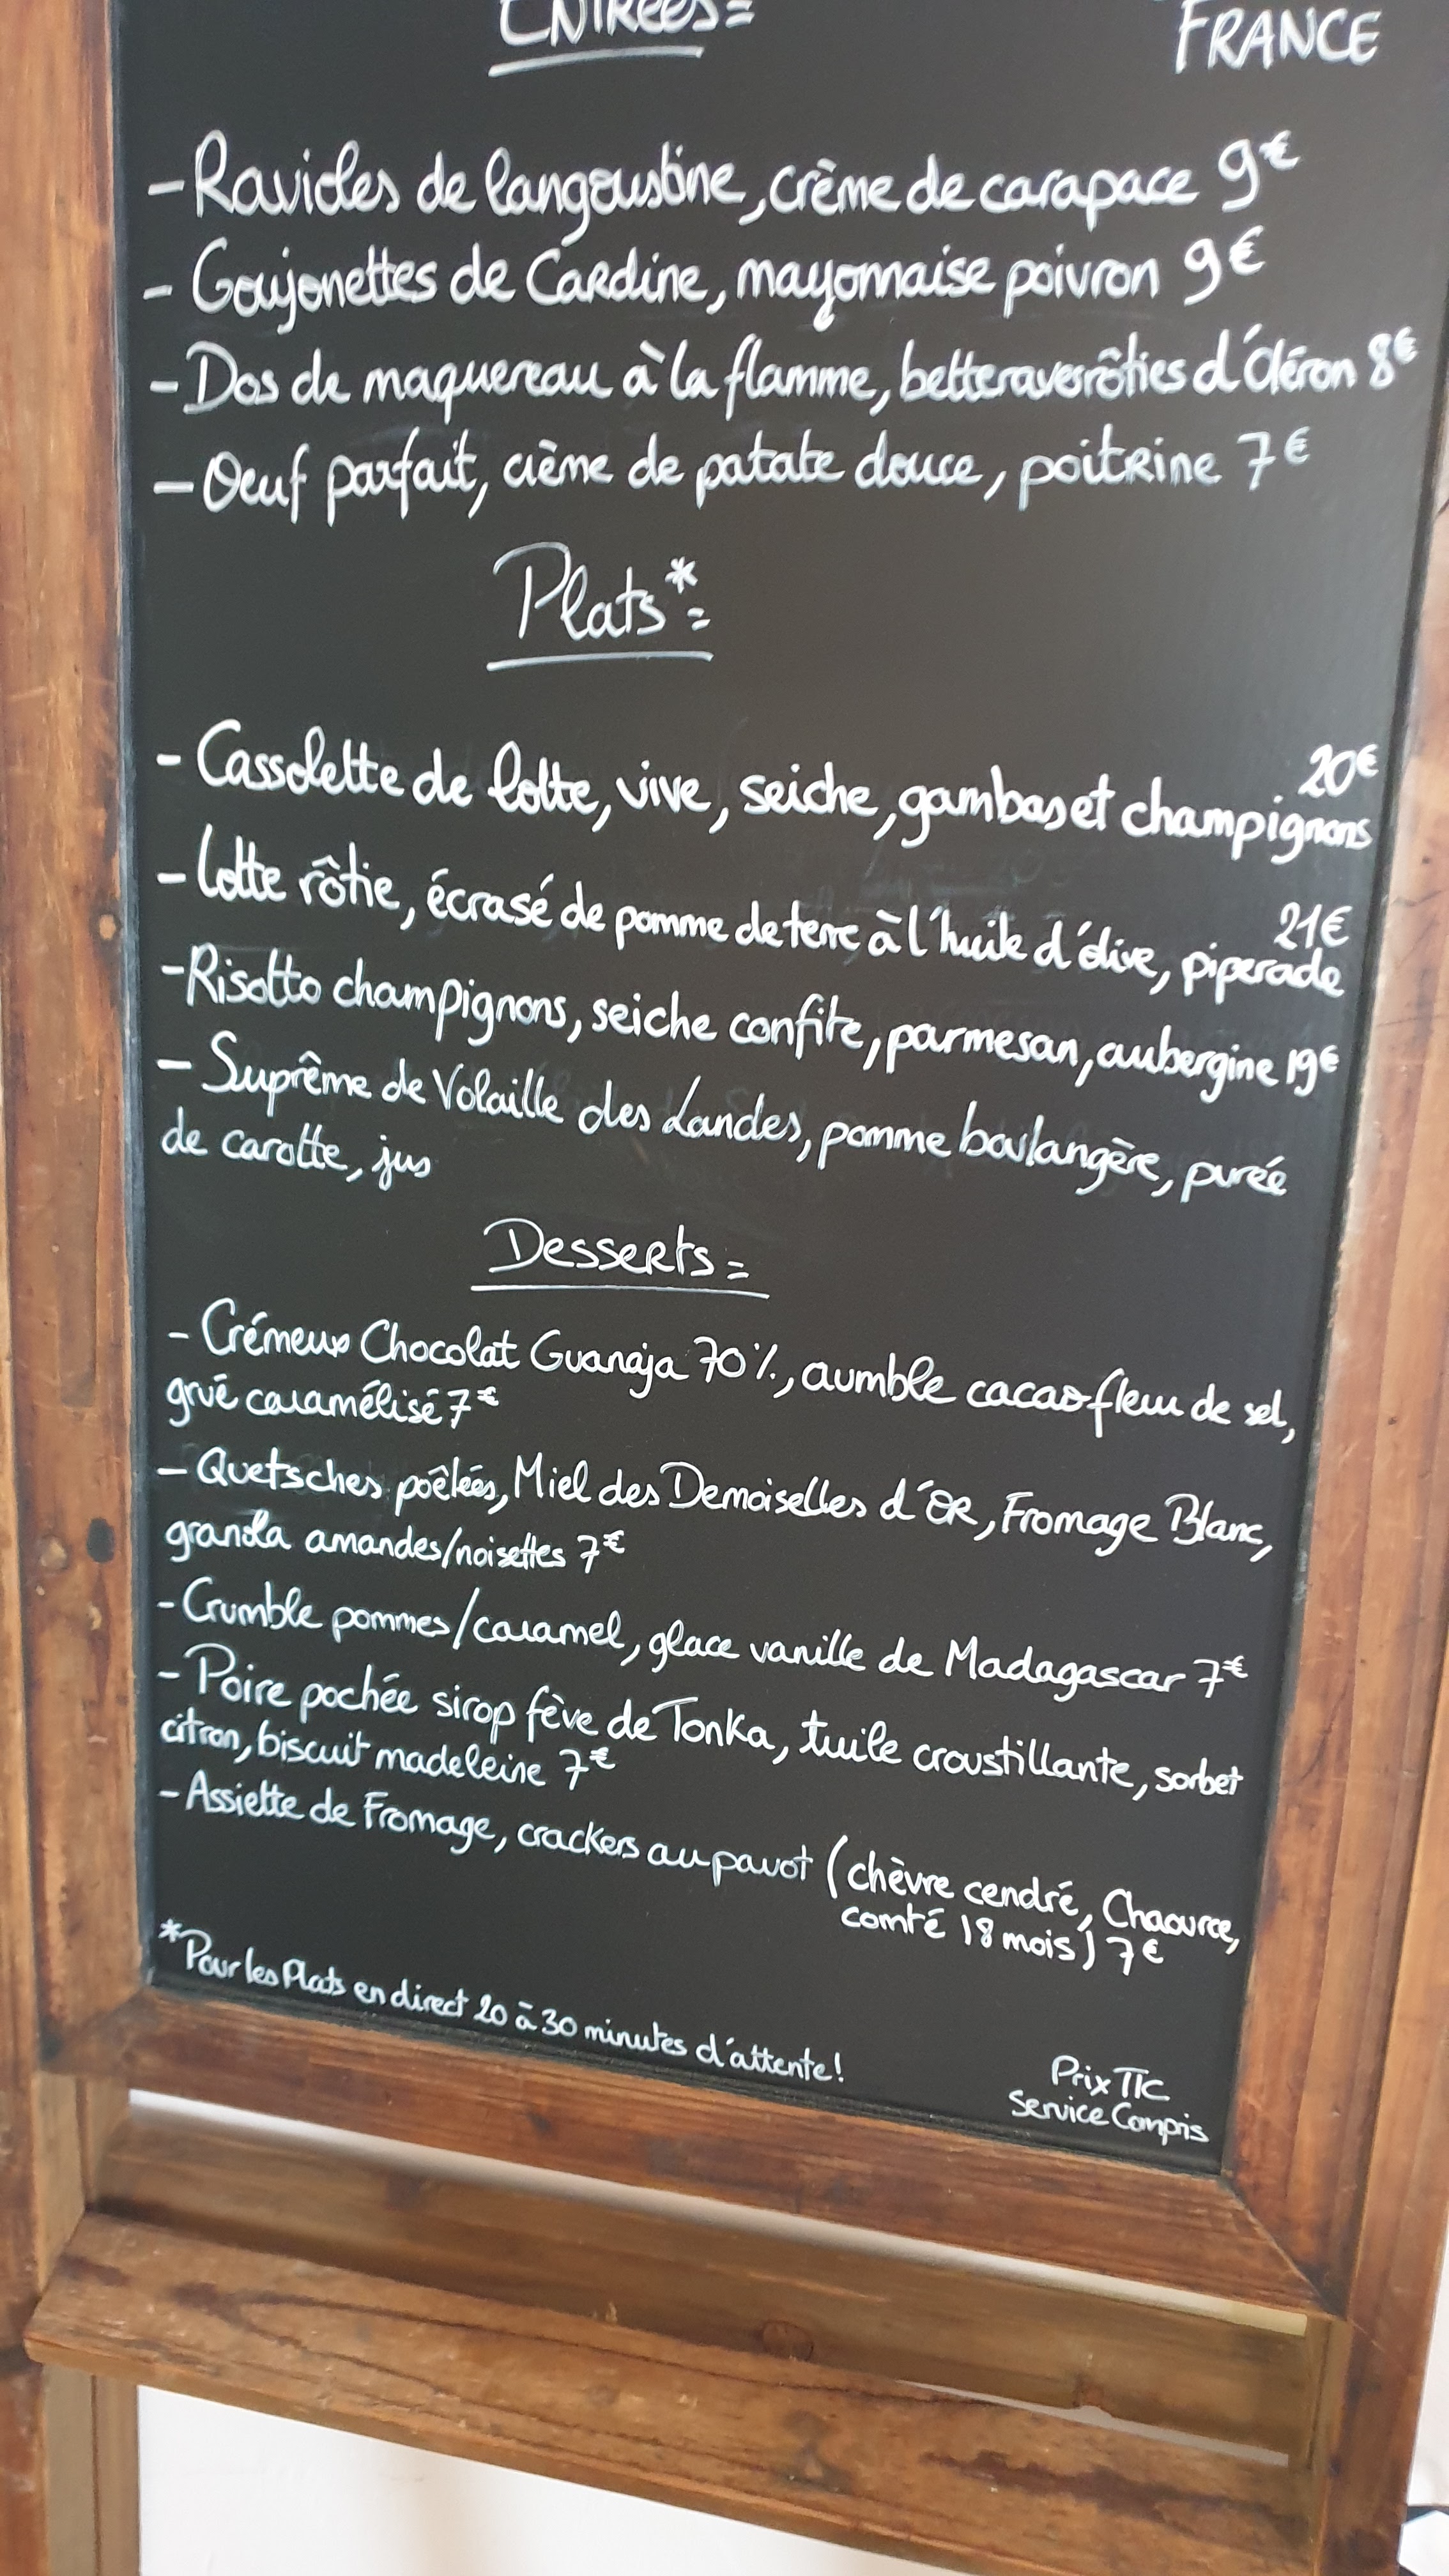 ENTRÉES=
FRANCE
- Ravioles de langoustine, crème de carapace 9€
- Goujonettes de Cardine, mayonnaise poivron 9€
- Dos de maquereau à la flamme, betteraves rôties d'Oléron 8€
- Oeuf parfait, crème de patate douce, poitrine 7€
Plats*=
20€
- Cassolette de lotte, vive, seiche, gambas et champignons
21€
- Lotte rôtie, écrasé de pomme de terre à l'huile d'olive, piperade
- Risotto champignons, seiche confite, parmesan, aubergine 19€
- Suprême de Volaille des Landes, pomme boulangère, purée
de carotte, jus
Desserts=
- Crémeux Chocolat Guanaja 70%, crumble cacao fleur de sel,
grué caramélisé 7€
- Quetsches poêlées, Miel des Demoiselles d'OR, Fromage Blanc,
granola amandes/noisettes 7€
- Crumble pommes/caramel, glace vanille de Madagascar 7€
- Poire pochée sirop fève de Tonka, tuile croustillante, sorbet
citron, biscuit madeleine 7€
- Assiette de Fromage, crackers au pavot (chèvre cendré, Chaource,
comté 18 mois) 7€
*Pour les Plats en direct 20 à 30 minutes d'attente!
Prix TTC
Service Compris